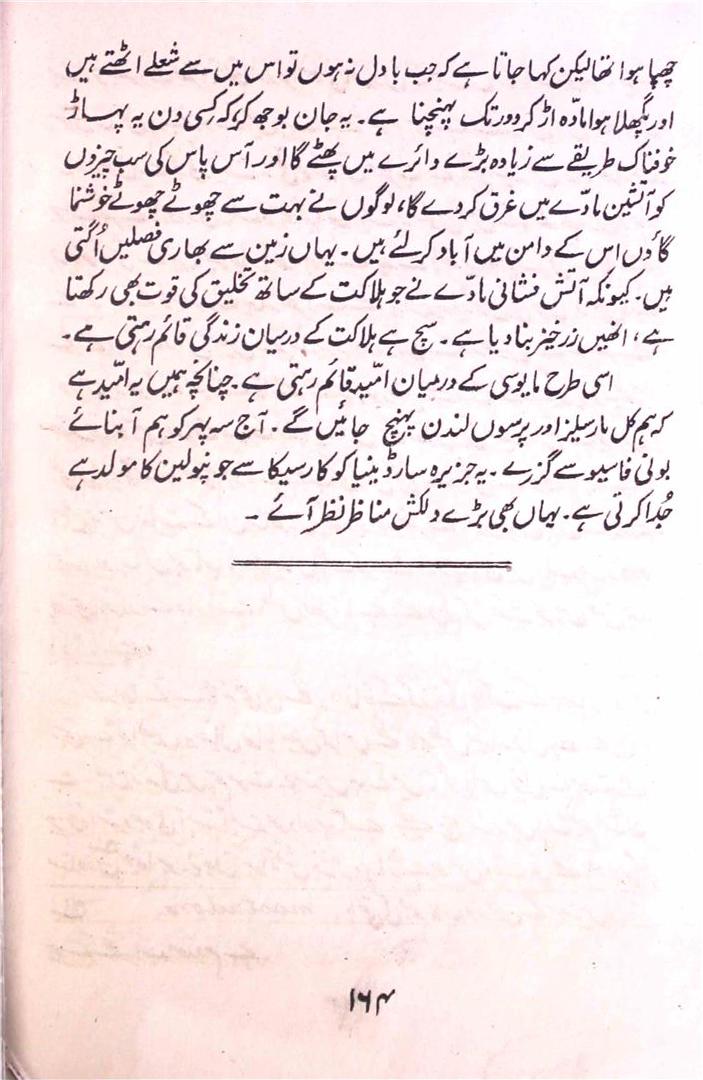 چھپا ہوا تھا لیکن کہا جاتا ہے کہ جب بادل نہ ہوں تو اس میں سے شعلے اٹھتے ہیں
اور پگھلا ہوا مادّہ اڑ کر دور تک پہنچتا ہے۔ یہ جان بوجھ کر، کہ کسی دن یہ پہاڑ
خوفناک طریقے سے زیادہ بڑے دائرے میں پھٹے گا اور آس پاس کی سب چیزوں
کو آتشین مادّے میں غرق کردے گا، لوگوں نے بہت سے چھوٹے چھوٹے خوشنما
گاؤں اس کے دامن میں آباد کرلئے ہیں۔ یہاں زمین سے بھاری فصلیں اُگتی
ہیں۔ کیونکہ آتش فشانی مادّے نے جو ہلاکت کے ساتھ تخلیق کی قوت بھی رکھتا
ہے، انھیں زرخیز بنا دیا ہے۔ سچ ہے ہلاکت کے درمیان زندگی قائم رہتی ہے۔
اسی طرح مایوسی کے درمیان امّید قائم رہتی ہے۔ چنانچہ ہمیں یہ امّید ہے
کہ ہم کل مارسیلز اور پرسوں لندن پہنچ جائیں گے۔ آج سہ پہر کو ہم آبنائے
بونی فاسیو سے گزرے۔ یہ جزیرہ سارڈینیا کو کارسیکا سے جو نپولین کا مولد ہے
جُدا کرتی ہے۔ یہاں بھی بڑے دلکش مناظر نظر آئے۔
۱۶۴